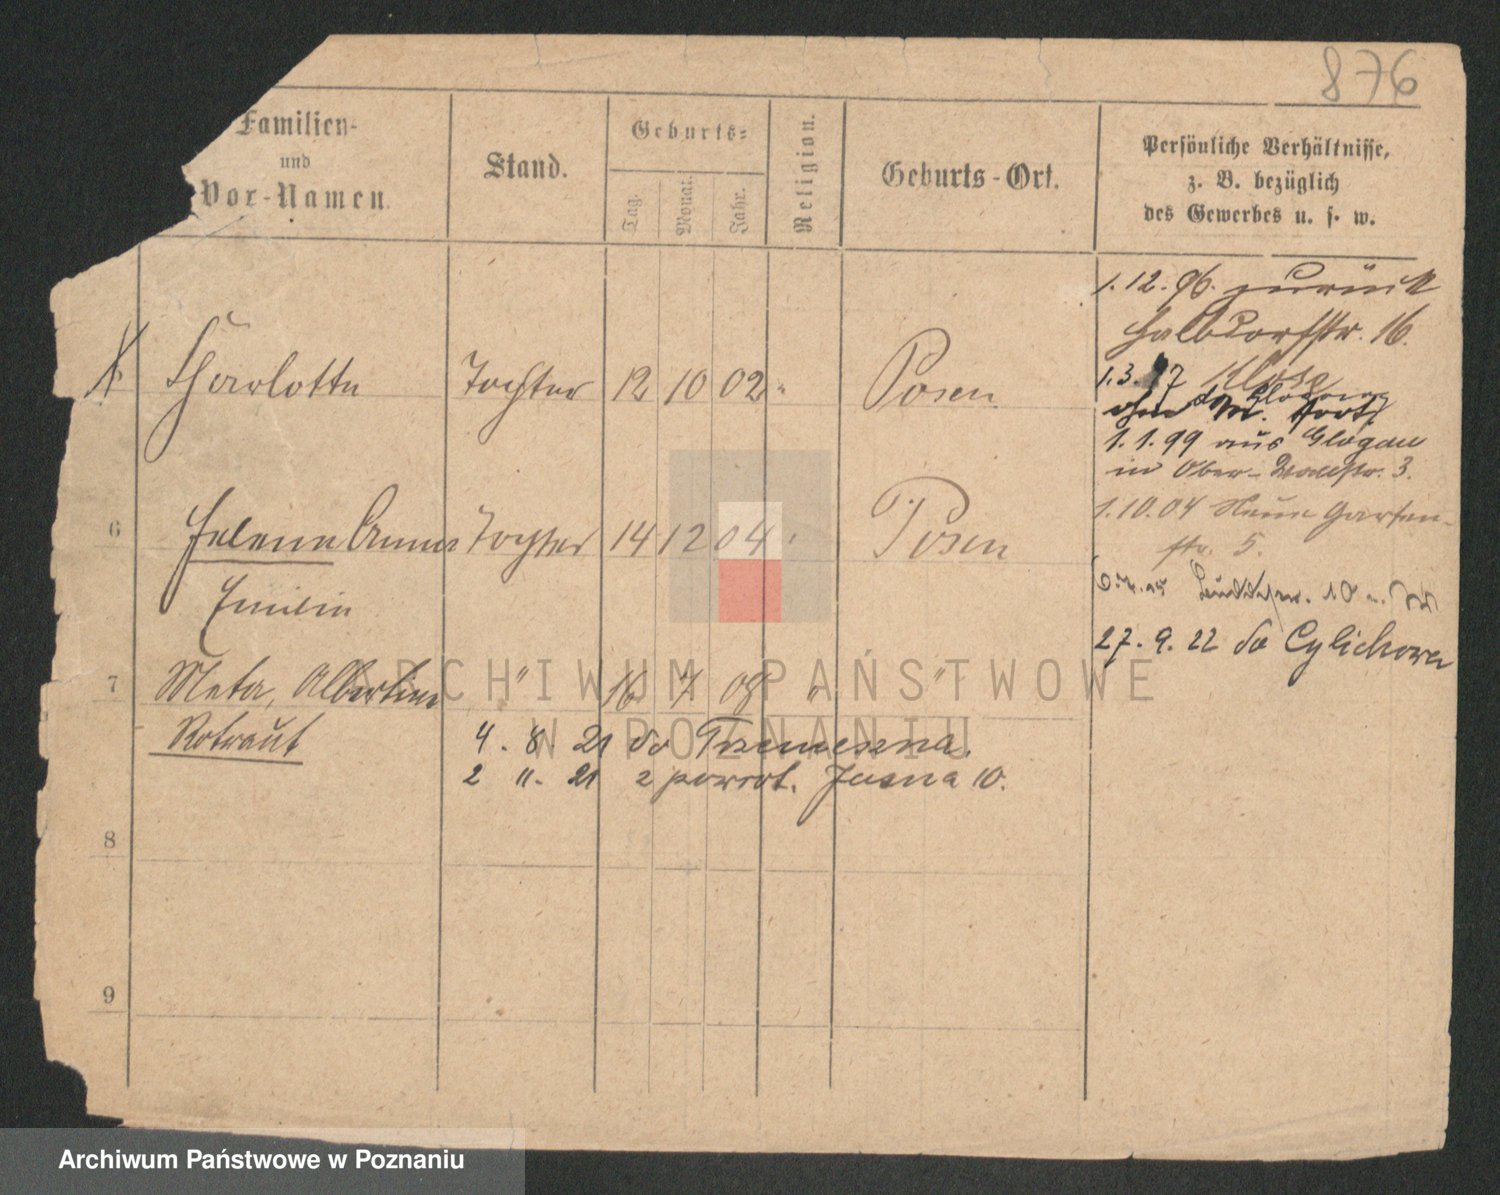 876
Familien-
und
Vor-Namen.
Stand.
Geburts-
Tag.
Monat.
Jahr.
Religion.
Geburts-Ort.
Persönliche Verhältnisse,
z. B. bezüglich
des Gewerbes u. s. w.
1. 12. 96. zurück
Halbdorfstr. 16.
Charlotte Tochter 12 10 02 " Posen
1. 3. 97
1. 1. 99 aus Glogau
in Ober-Wallstr. 3.
6 Helene Anna Tochter 14 12 04 " Posen
Emilie
1. 10. 04 Neue Garten-
str. 5.
27. 9. 22 do Cylichowa
7 Meta, Albertine " 16 7 08 " "
Rotraut
4. 8. 21 do Trzemeszna.
2 11. 21 z powrot. Jasna 10.
8
9
ARCHIWUM PAŃSTWOWE
W POZNANIU
Archiwum Państwowe w Poznaniu